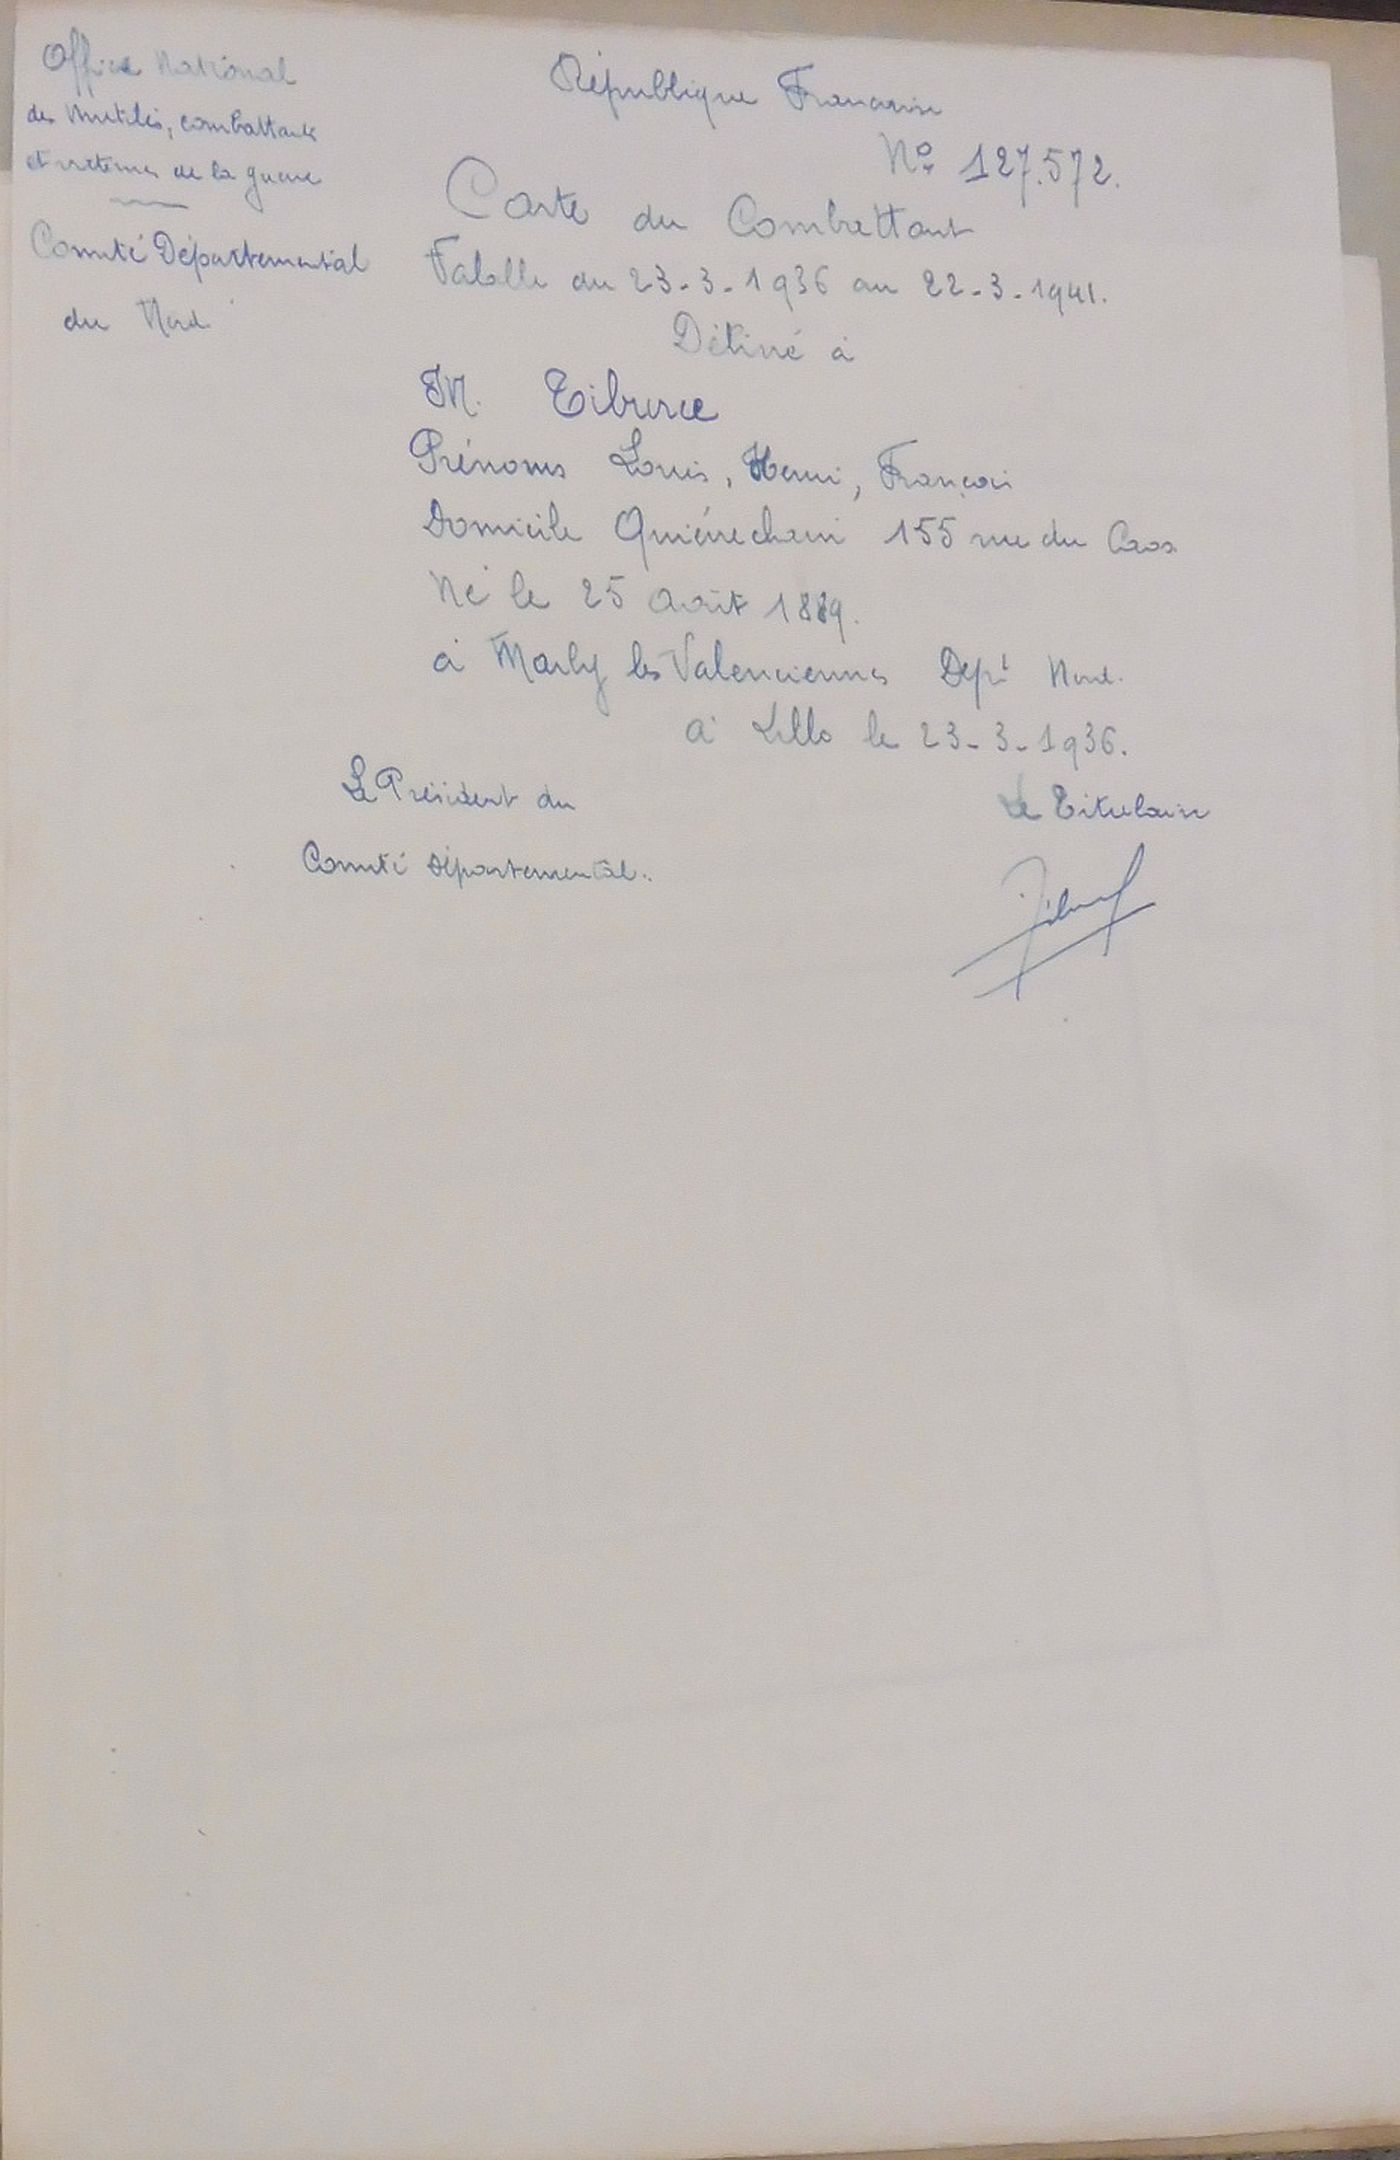 Office National
des Mutilés, combattants
et victimes de la guerre
Comité Départemental
du Nord
République Française
No 127.572.
Carte du Combattant
Valable du 23-3-1936 au 22-3-1941.
Délivré à
M. Tiburce
Prénoms Louis, Henri, François
Domicile Quiévrechain 155 rue du
Né le 25 août 1889.
à Marly les Valenciennes Dept Nord.
à Lille le 23-3-1936.
Le Président du
Comité Départemental.
Le Titulaire